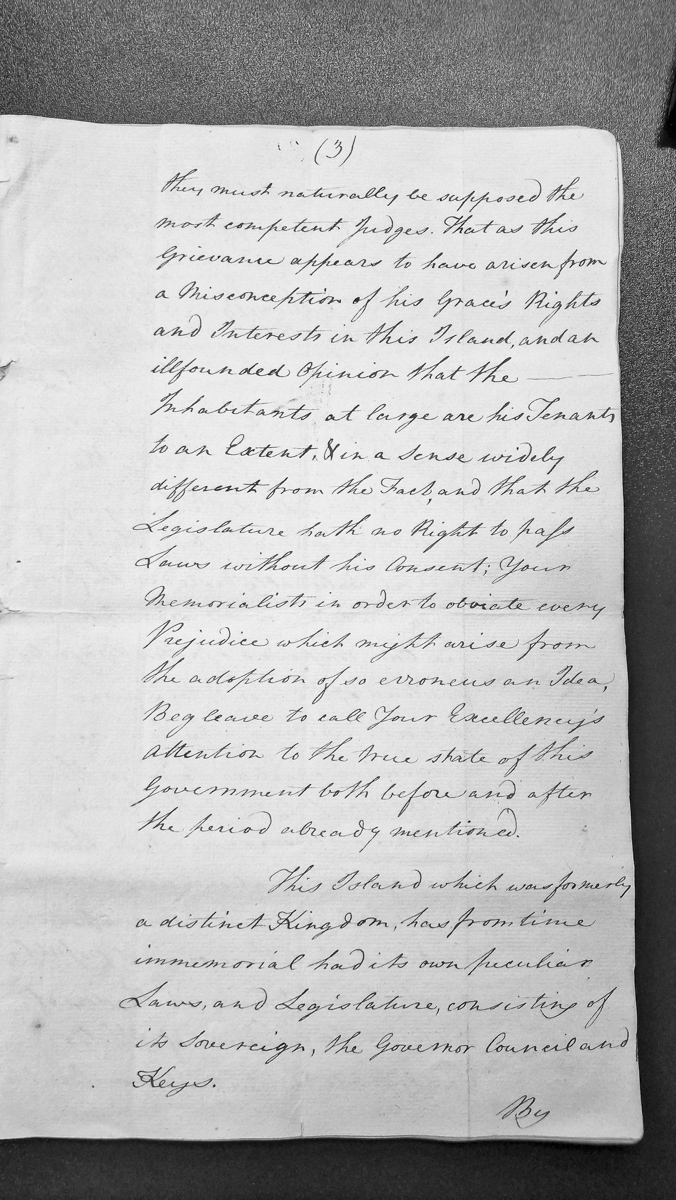 (3)
they must naturally be supposed the
most competent Judges. That as this
Grievance appears to have arisen from
a Misconception of his Grace's Rights
and Interests in this Island, and an
illfounded Opinion that the ———
Inhabitants at large are his Tenants
to an Extent, & in a sense widely
different from the Fact, and that the
Legislature hath no Right to pass
Laws without his Consent; Your
Memorialists in order to obviate every
Prejudice which might arise from
the adoption of so erroneus an Idea,
Beg leave to call Your Excellency's
attention to the true state of this
Government both before and after
the period already mentioned.
This Island which was formerly
a distinct Kingdom, has from time
immemorial had its own peculiar
Laws, and Legislature, consisting of
its Sovereign, the Governor Council and
Keys.
By